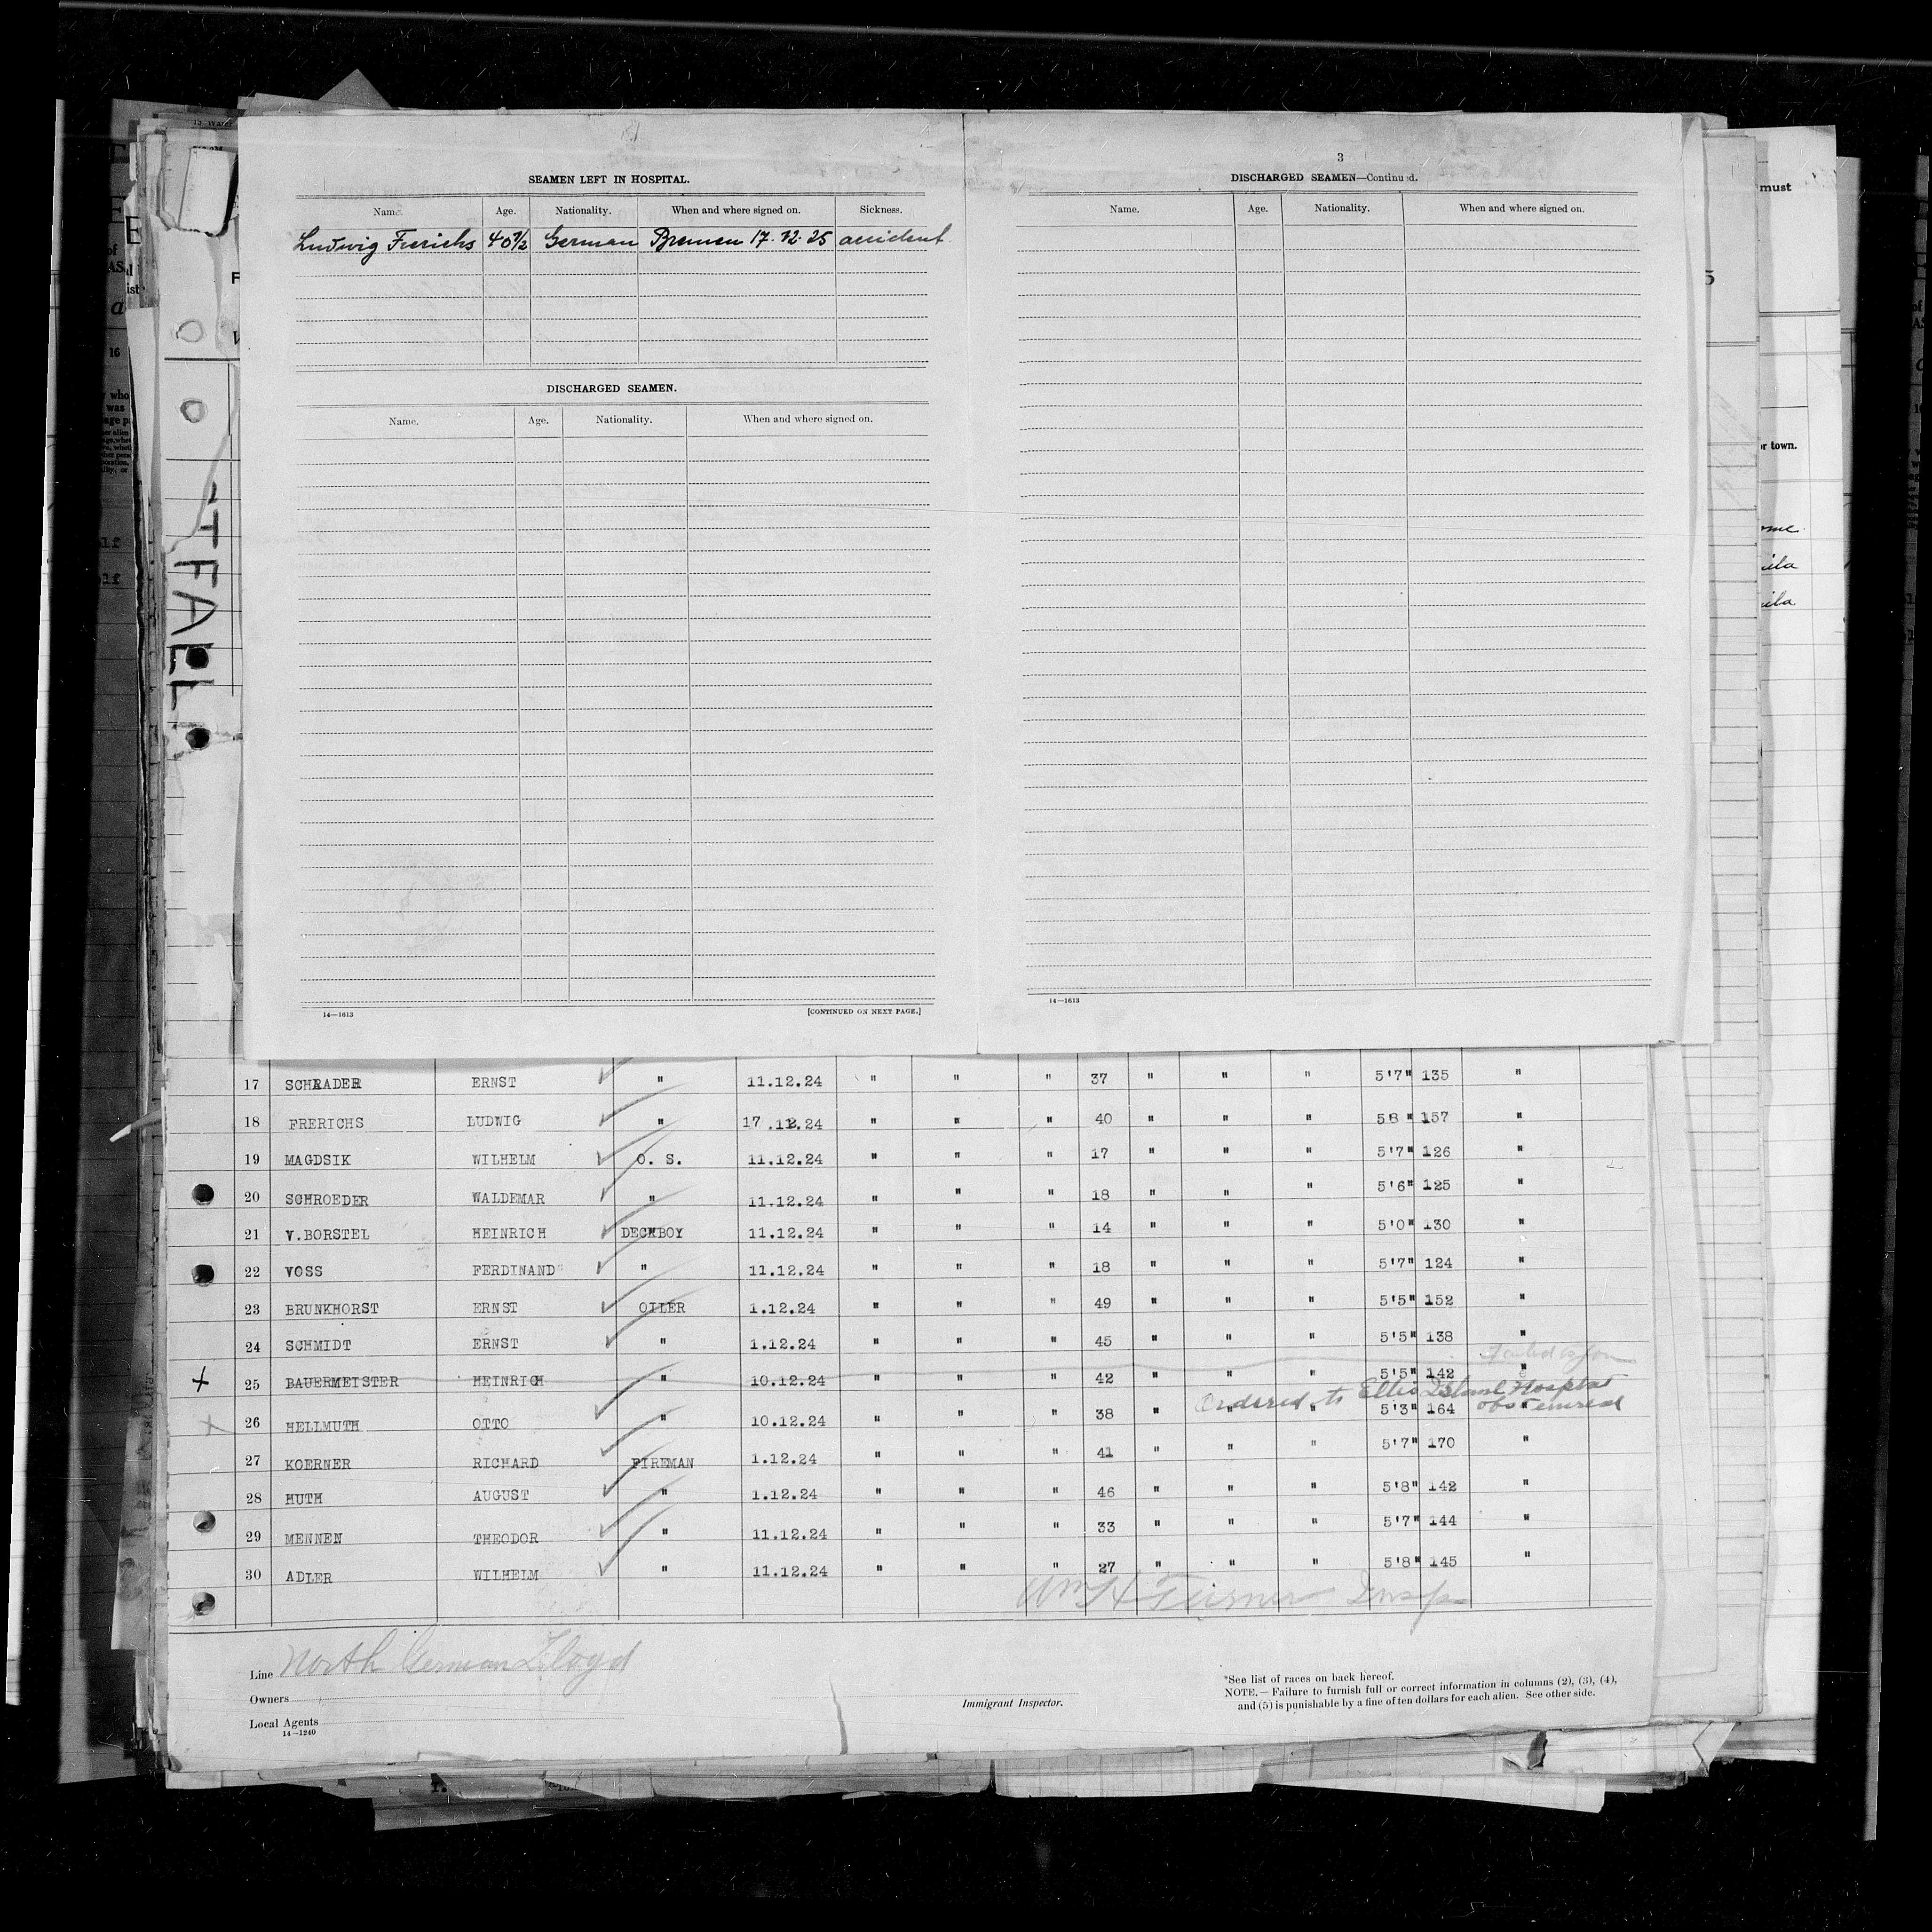 SEAMEN LEFT IN HOSPITAL.
Name. Age. Nationality. When and where signed on. Sickness.
Ludwig Frerichs 40½ German Bremen 17.12.25 accident.
DISCHARGED SEAMEN.
Name. Age. Nationality. When and where signed on.
14—1613 [CONTINUED ON NEXT PAGE.]
3
DISCHARGED SEAMEN—Continued.
Name. Age. Nationality. When and where signed on.
14—1613
must
or town.
TFAL
17 SCHRADER ERNST " 11.12.24 " " " 37 " " " 5'7" 135 "
18 FRERICHS LUDWIG " 17.12.24 " " " 40 " " " 58" 157 "
19 MAGDSIK WILHELM O. S. 11.12.24 " " " 17 " " " 5'7" 126 "
20 SCHROEDER WALDEMAR " 11.12.24 " " " 18 " " " 5'6" 125 "
21 V.BORSTEL HEINRICH DECKBOY 11.12.24 " " " 14 " " " 5'0" 130 "
22 VOSS FERDINAND " 11.12.24 " " " 18 " " " 5'7" 124 "
23 BRUNKHORST ERNST OILER 1.12.24 " " " 49 " " " 5'5" 152 "
24 SCHMIDT ERNST " 1.12.24 " " " 45 " " " 5'5" 138 "
25 BAUERMEISTER HEINRICH " 10.12.24 " " " 42 " " " 5'5" 142 "
Ordered to Ellis Island Hospital
26 HELLMUTH OTTO " 10.12.24 " " " 38 " " " 5'3" 164 "
27 KOERNER RICHARD FIREMAN 1.12.24 " " " 41 " " " 5'7" 170 "
28 HUTH AUGUST " 1.12.24 " " " 46 " " " 5'8" 142 "
29 MENNEN THEODOR " 11.12.24 " " " 33 " " " 5'7" 144 "
30 ADLER WILHELM " 11.12.24 " " " 27 " " " 5'8" 145 "
Wm H Turner Insp
Line North German Lloyd
Owners
Local Agents
14—1240
Immigrant Inspector.
*See list of races on back hereof.
NOTE.—Failure to furnish full or correct information in columns (2), (3), (4),
and (5) is punishable by a fine of ten dollars for each alien. See other side.